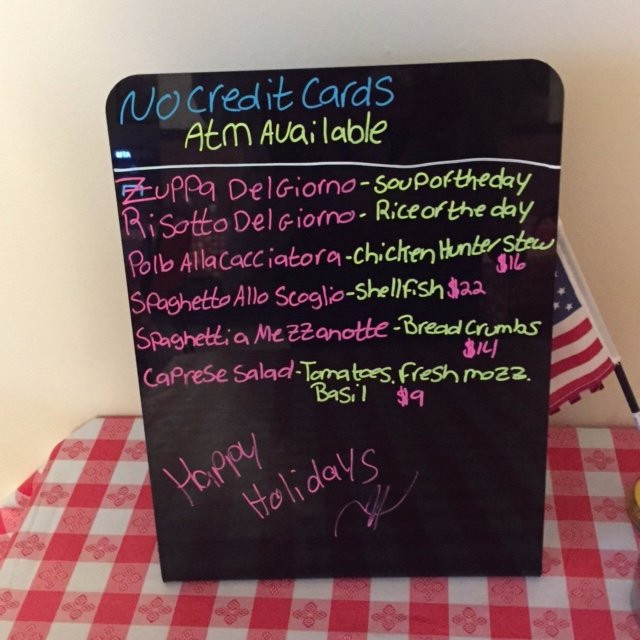 No Credit Cards
ATM Available
Zuppa Del Giorno - Soup of the day
Risotto Del Giorno - Rice of the day
Pollo Alla Cacciatora - Chicken Hunter Stew
$16
Spaghetto Allo Scoglio - Shellfish $22
Spaghetti a Mezzanotte - Bread Crumbs
$14
Caprese Salad - Tomatoes, fresh mozz.
Basil $9
Happy
Holidays